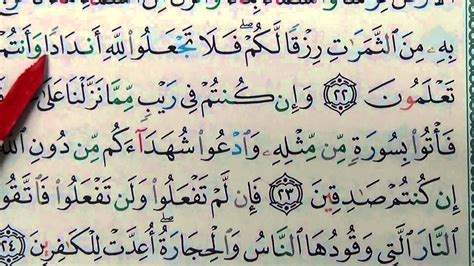 بِهِۦ مِنَ ٱلثَّمَرَٰتِ رِزْقًا لَّكُمْ ۖ فَلَا تَجْعَلُوا۟ لِلَّهِ أَندَادًا وَأَنتُمْ
تَعْلَمُونَ ٢٢ وَإِن كُنتُمْ فِى رَيْبٍ مِّمَّا نَزَّلْنَا عَلَىٰ
فَأْتُوا۟ بِسُورَةٍ مِّن مِّثْلِهِۦ وَٱدْعُوا۟ شُهَدَآءَكُم مِّن دُونِ ٱللَّهِ
إِن كُنتُمْ صَٰدِقِينَ ٢٣ فَإِن لَّمْ تَفْعَلُوا۟ وَلَن تَفْعَلُوا۟ فَٱتَّقُوا۟
ٱلنَّارَ ٱلَّتِى وَقُودُهَا ٱلنَّاسُ وَٱلْحِجَارَةُ ۖ أُعِدَّتْ لِلْكَٰفِرِينَ ٢٤